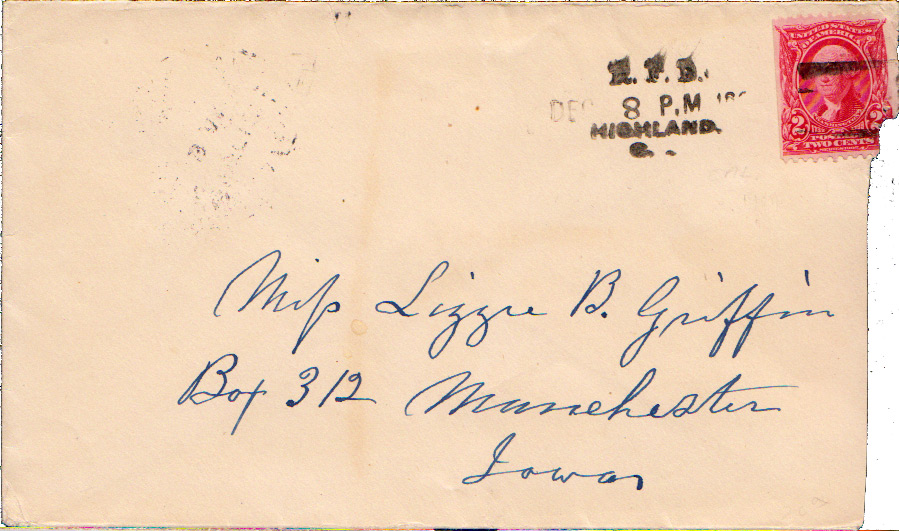 R. F. D.
DEC 8 P.M 190
HIGHLAND.
UNITED STATES
OF AMERICA
2 2
POSTAGE
TWO CENTS
Miss Lizzie B. Griffin
Box 312 Manchester
Iowa